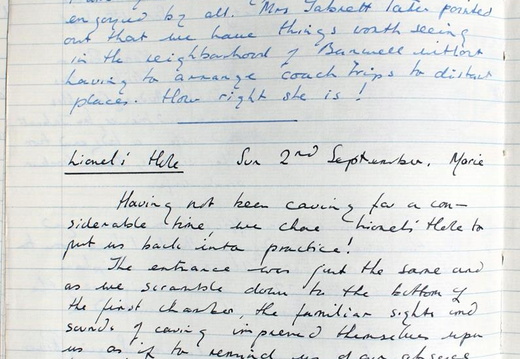 enjoyed by all. Mrs Tabrett later pointed
out that we have things worth seeing
in the neighbourhood of Banwell without
having to arrange coach trips to distant
places. How right she is!
Lionel's Hole Sun 2nd September. Marie
Having not been caving for a con-
siderable time, we chose Lionel's Hole to
put us back into practice!
The entrance was just the same and
as we scramble down to the bottom of
the first chamber, the familiar sights and
sounds of caving impressed themselves upon
us as if to remind us of our absence